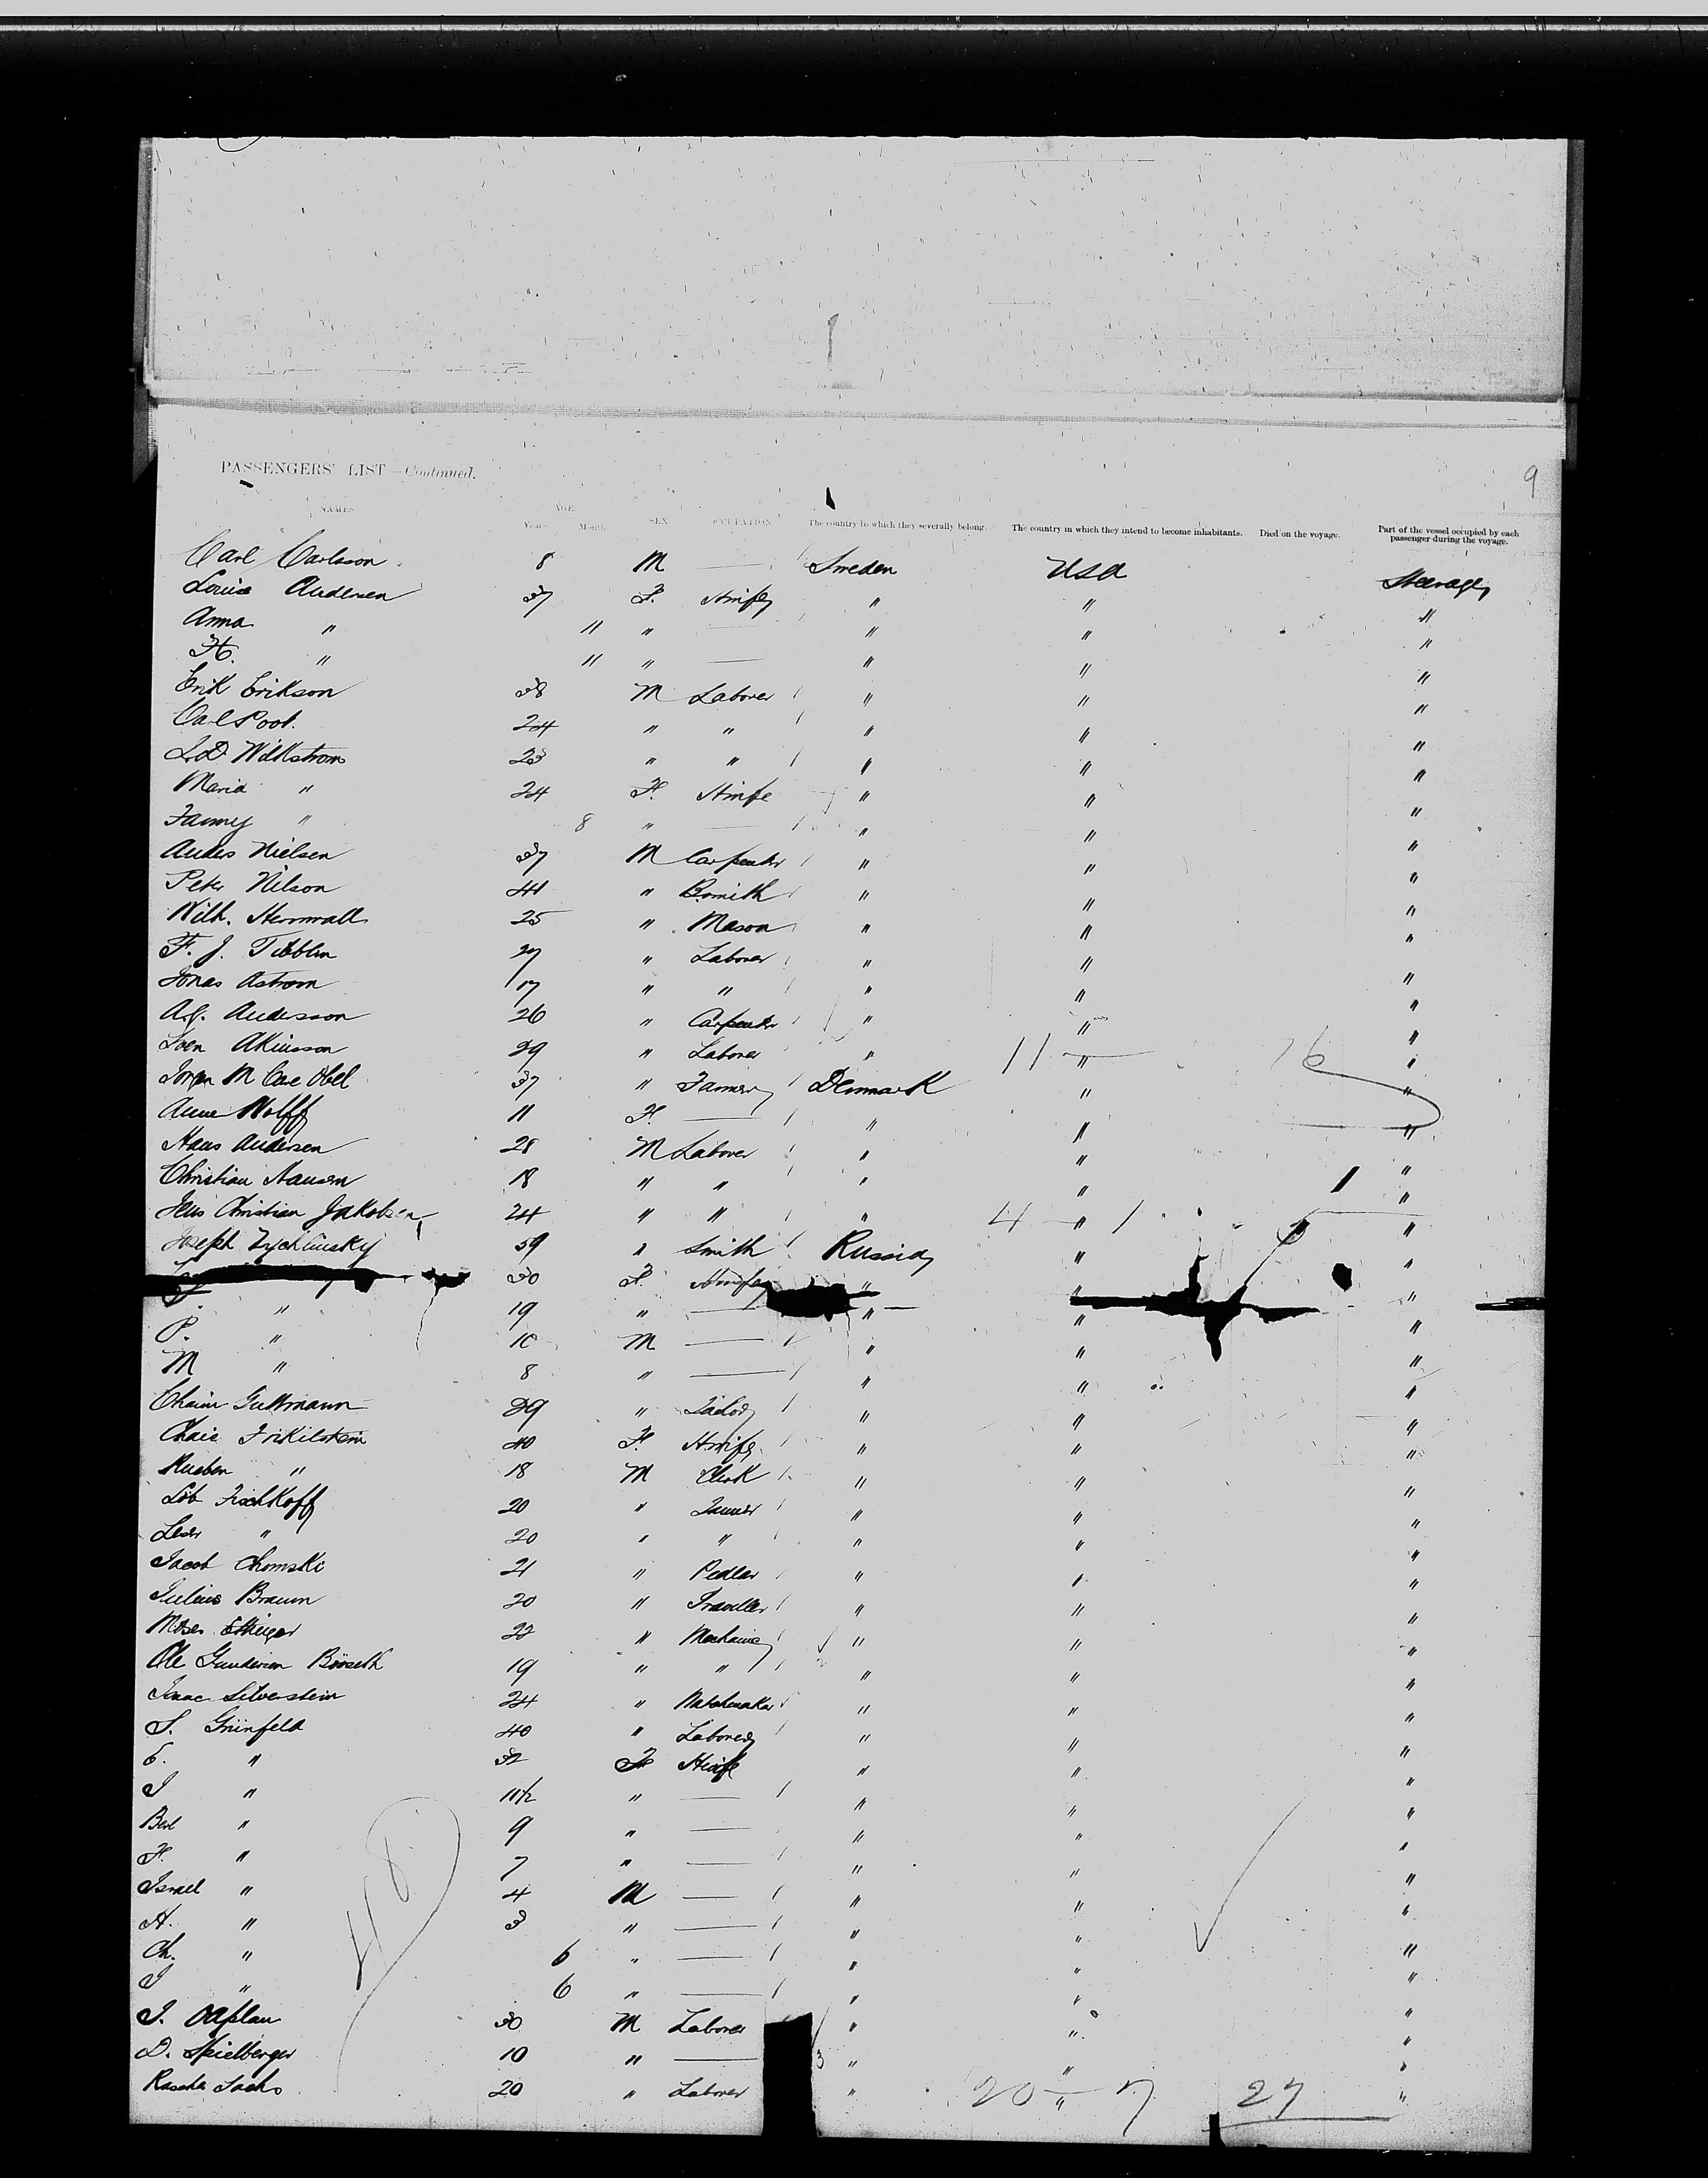 PASSENGERS' LIST—Continued.
9
NAMES AGE Years Months SEX OCCUPATION The country to which they severally belong. The country in which they intend to become inhabitants. Died on the voyage. Part of the vessel occupied by each passenger during the voyage.
Carl Carlsson 8 M — Sweden USA Steerage
Louise Andersen 37 F. Hwife " " "
Anna " 11 " — " " "
H. " 11 " — " " "
Erik Erikson 38 M Laborer " " "
Carl Post. 24 " " " " "
Wikstrom 23 " " " " "
Maria " 24 F. Hwife " " "
Fanny " 8 " — " " "
Anders Nielsen 37 M Carpenter " " "
Peter Nilson 41 " B.smith " " "
Wilh. 25 " Mason " " "
F. J. Tibblin 27 " Laborer " " "
Jonas Astrom 17 " " " " "
Andersson 26 " Carpenter " " "
Akinsson 29 " Laborer " 11 — " 16 "
37 " Farmer Denmark " "
Anne Wolff 11 F. — " " "
Hans Andersen 28 M Laborer " " "
Christian Hansen 18 " " " " "
Jens Christian Jakobsen 24 " " " 4 — " 1 "
Joseph Zychlinsky 59 " Smith Russia " "
30 F. Hwife " " "
" 19 " — " " "
P. " 10 M — " " "
M " 8 " — " " "
Chaim Guttmann 29 " Tailor " " "
Chaie Frikilstein 40 F. Hwife " " "
Rueben " 18 M Clerk " " "
Löb Fischkoff 20 " Tanner " " "
Leser " 20 " " " " "
Jacob Chomski 21 " Pedlar " " "
Julius Braun 20 " Traveller " " "
Moses Ettinger 22 " Mechanic " " "
Ole Gundersen 19 " " " " "
Isaac Silverstein 24 " Watchmaker " " "
S. Grünfeld 40 " Laborer " " "
E. " 32 F Hwife " " "
J " 11½ " — " " "
Berl " 9 " — " " "
F. " 7 " — " " "
Israel " 4 M — " " "
A. " 3 " — " " "
Ch. " 6 " — " " "
J " 6 " — " " "
J. Caplan 30 M Laborer " " "
D. Spielberger 10 " — 3 " " "
Rascha Sachs 20 " Laborer " 20 — " 7 27 "